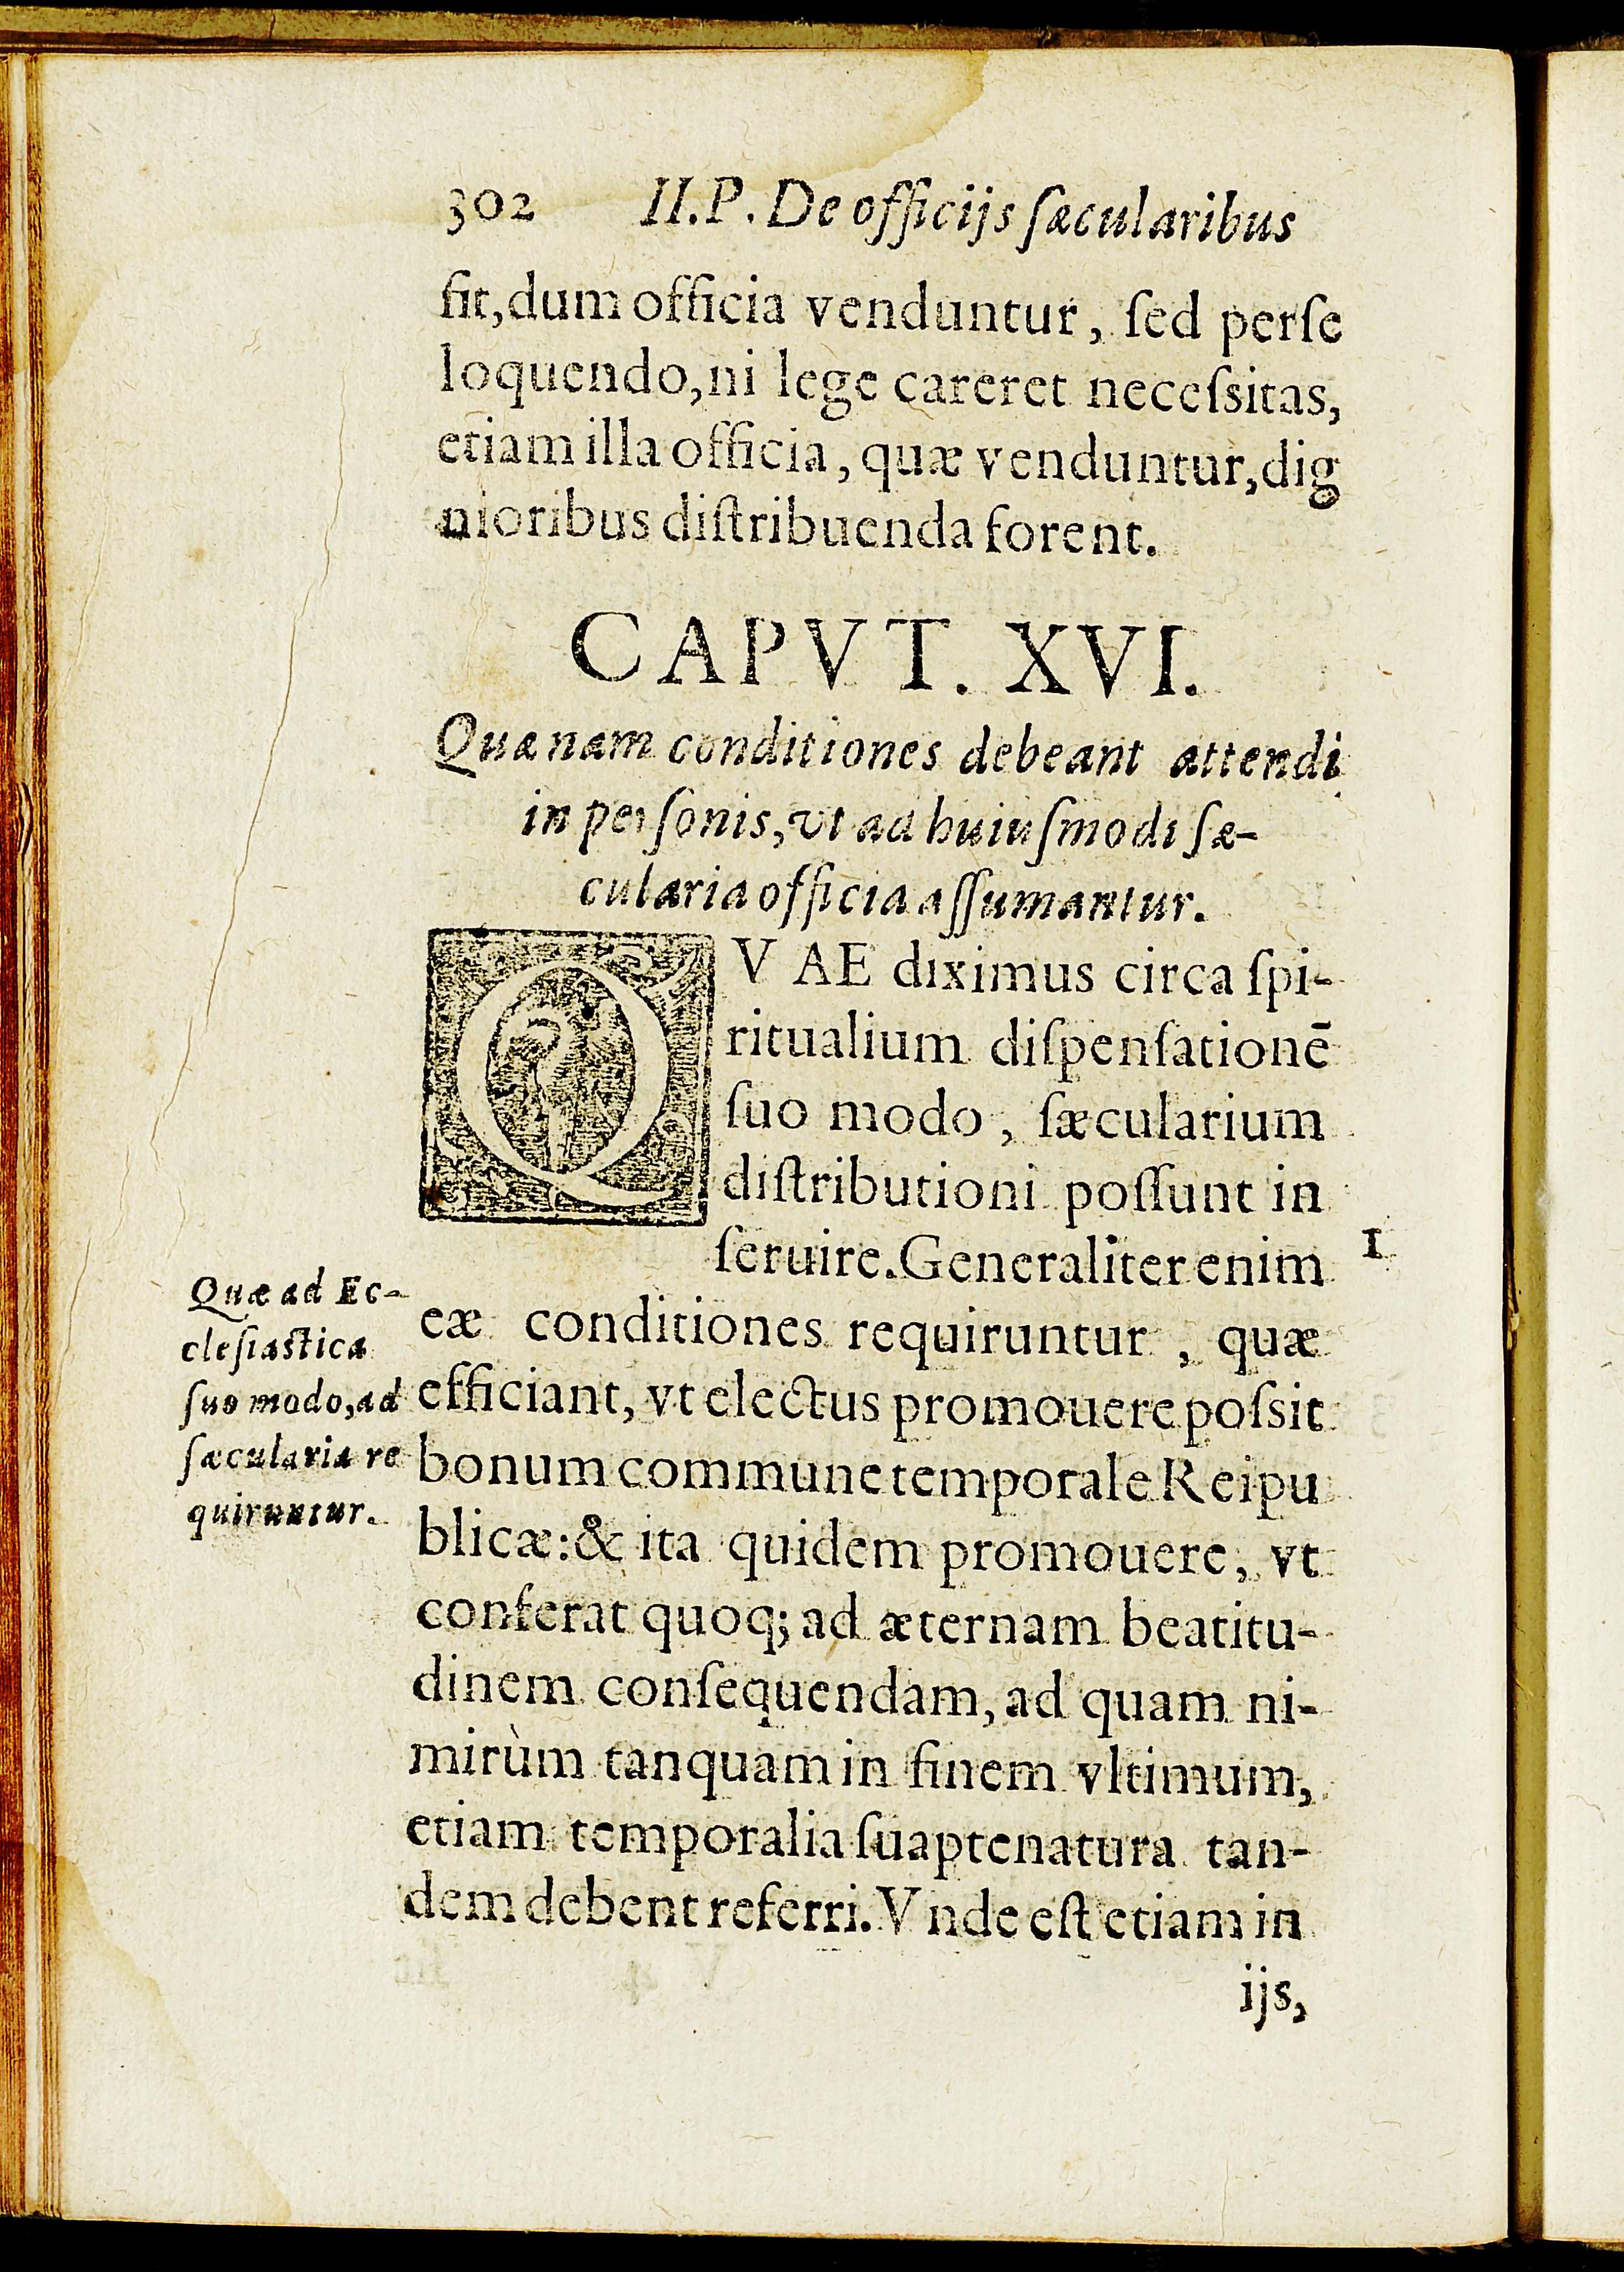 302 II.P. De officijs ſæcularibus
fit, dum officia venduntur, ſed perſe
loquendo, ni lege careret neceſsitas,
etiam illa officia, quæ venduntur, dig
nioribus diſtribuenda forent.
CAPVT. XVI.
Quænam conditiones debeant attendi
in perſonis, vt ad huiuſmodi ſæ-
cularia officia aſſumantur.
QVAE diximus circa ſpi-
ritualium diſpenſationē
ſuo modo, ſæcularium
diſtributioni poſſunt in
ſeruire. Generaliter enim
1
eæ conditiones requiruntur, quæ
efficiant, vt electus promouere poſsit
bonum commune temporale Reipu
blicæ: & ita quidem promouere, vt
conferat quoq; ad æternam beatitu-
dinem conſequendam, ad quam ni-
mirùm tanquam in finem vltimum,
etiam temporalia ſuaptenatura tan-
dem debent referri. Vnde eſt etiam in
ijs,
Quæ ad Ec-
cleſiaſtica
ſuo modo, ad
ſæcularia re
quiruntur.